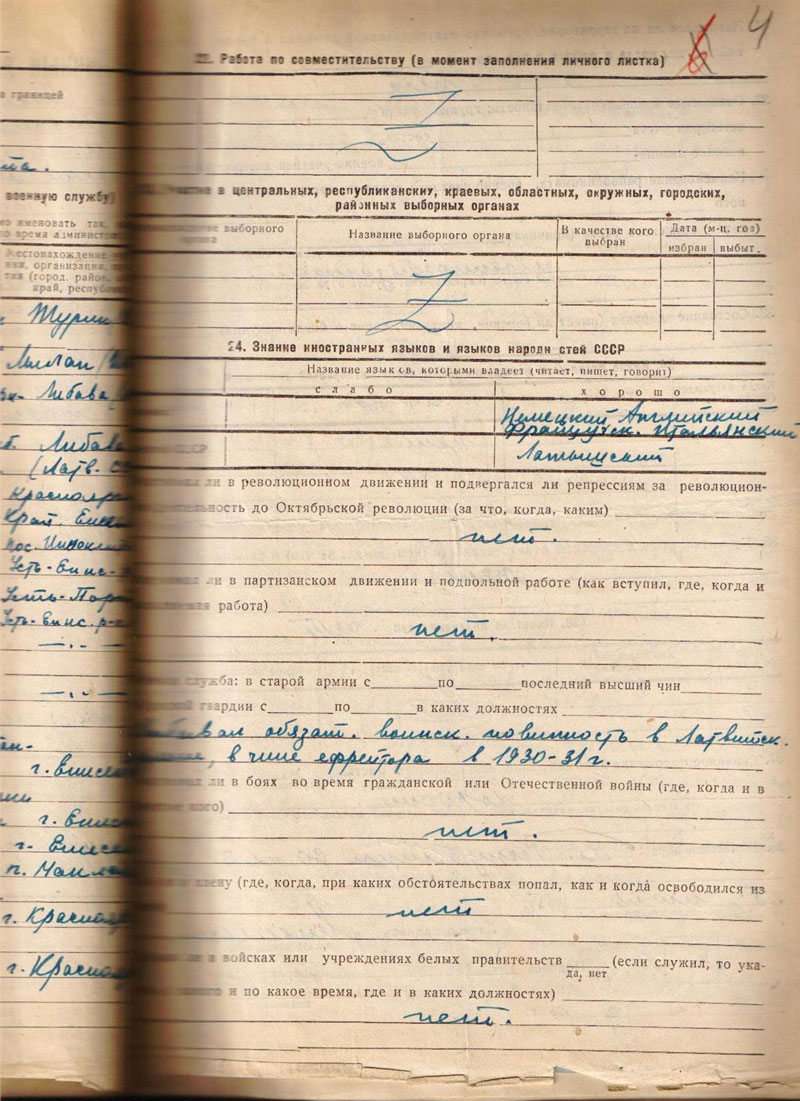 4
6
Работа по совместительству (в момент заполнения личного листка)
а границей
та.
военную службу)
в центральных, республиканских, краевых, областных, окружных, городских,
районных выборных органах
но именовать так,
во время
Местонахождение
ния, организации,
тия (город, район,
край, респу
выборного
органа
Название выборного органа
В качестве кого
выбран
Дата (м-ц, год)
избран
выбыт.
24. Знание иностранных языков и языков народностей СССР
Название языков, которыми владеет (читает, пишет, говорит)
слабо
хорошо
Немецкий Английский
Французск. Итальянский
Латышский
г. Турин
Милан
Либава
г. Либава
(Латв. С
Краснояр
край. Ени
Усть-Енис.
Усть-Пор
Усть-Енис. р-
—.—
—.—
г. Енисе
г. Ени
г. Енисе
г. Красноя
г. Красноя
ли в революционном движении и подвергался ли репрессиям за революцион-
ность до Октябрьской революции (за что, когда, каким)
нет.
ли в партизанском движении и подпольной работе (как вступил, где, когда и
работа)
нет.
служба: в старой армии с по последний высший чин
гвардии с по в каких должностях
обязат. воинск. повинность в Латвийск.
в чине ефрейтора в 1930-31 г.
ли в боях во время гражданской или Отечественной войны (где, когда и в
нет.
плену (где, когда, при каких обстоятельствах попал, как и когда освободился из
нет
в войсках или учреждениях белых правительств (если служил, то ука-
да, нет
и по какое время, где и в каких должностях)
нет.